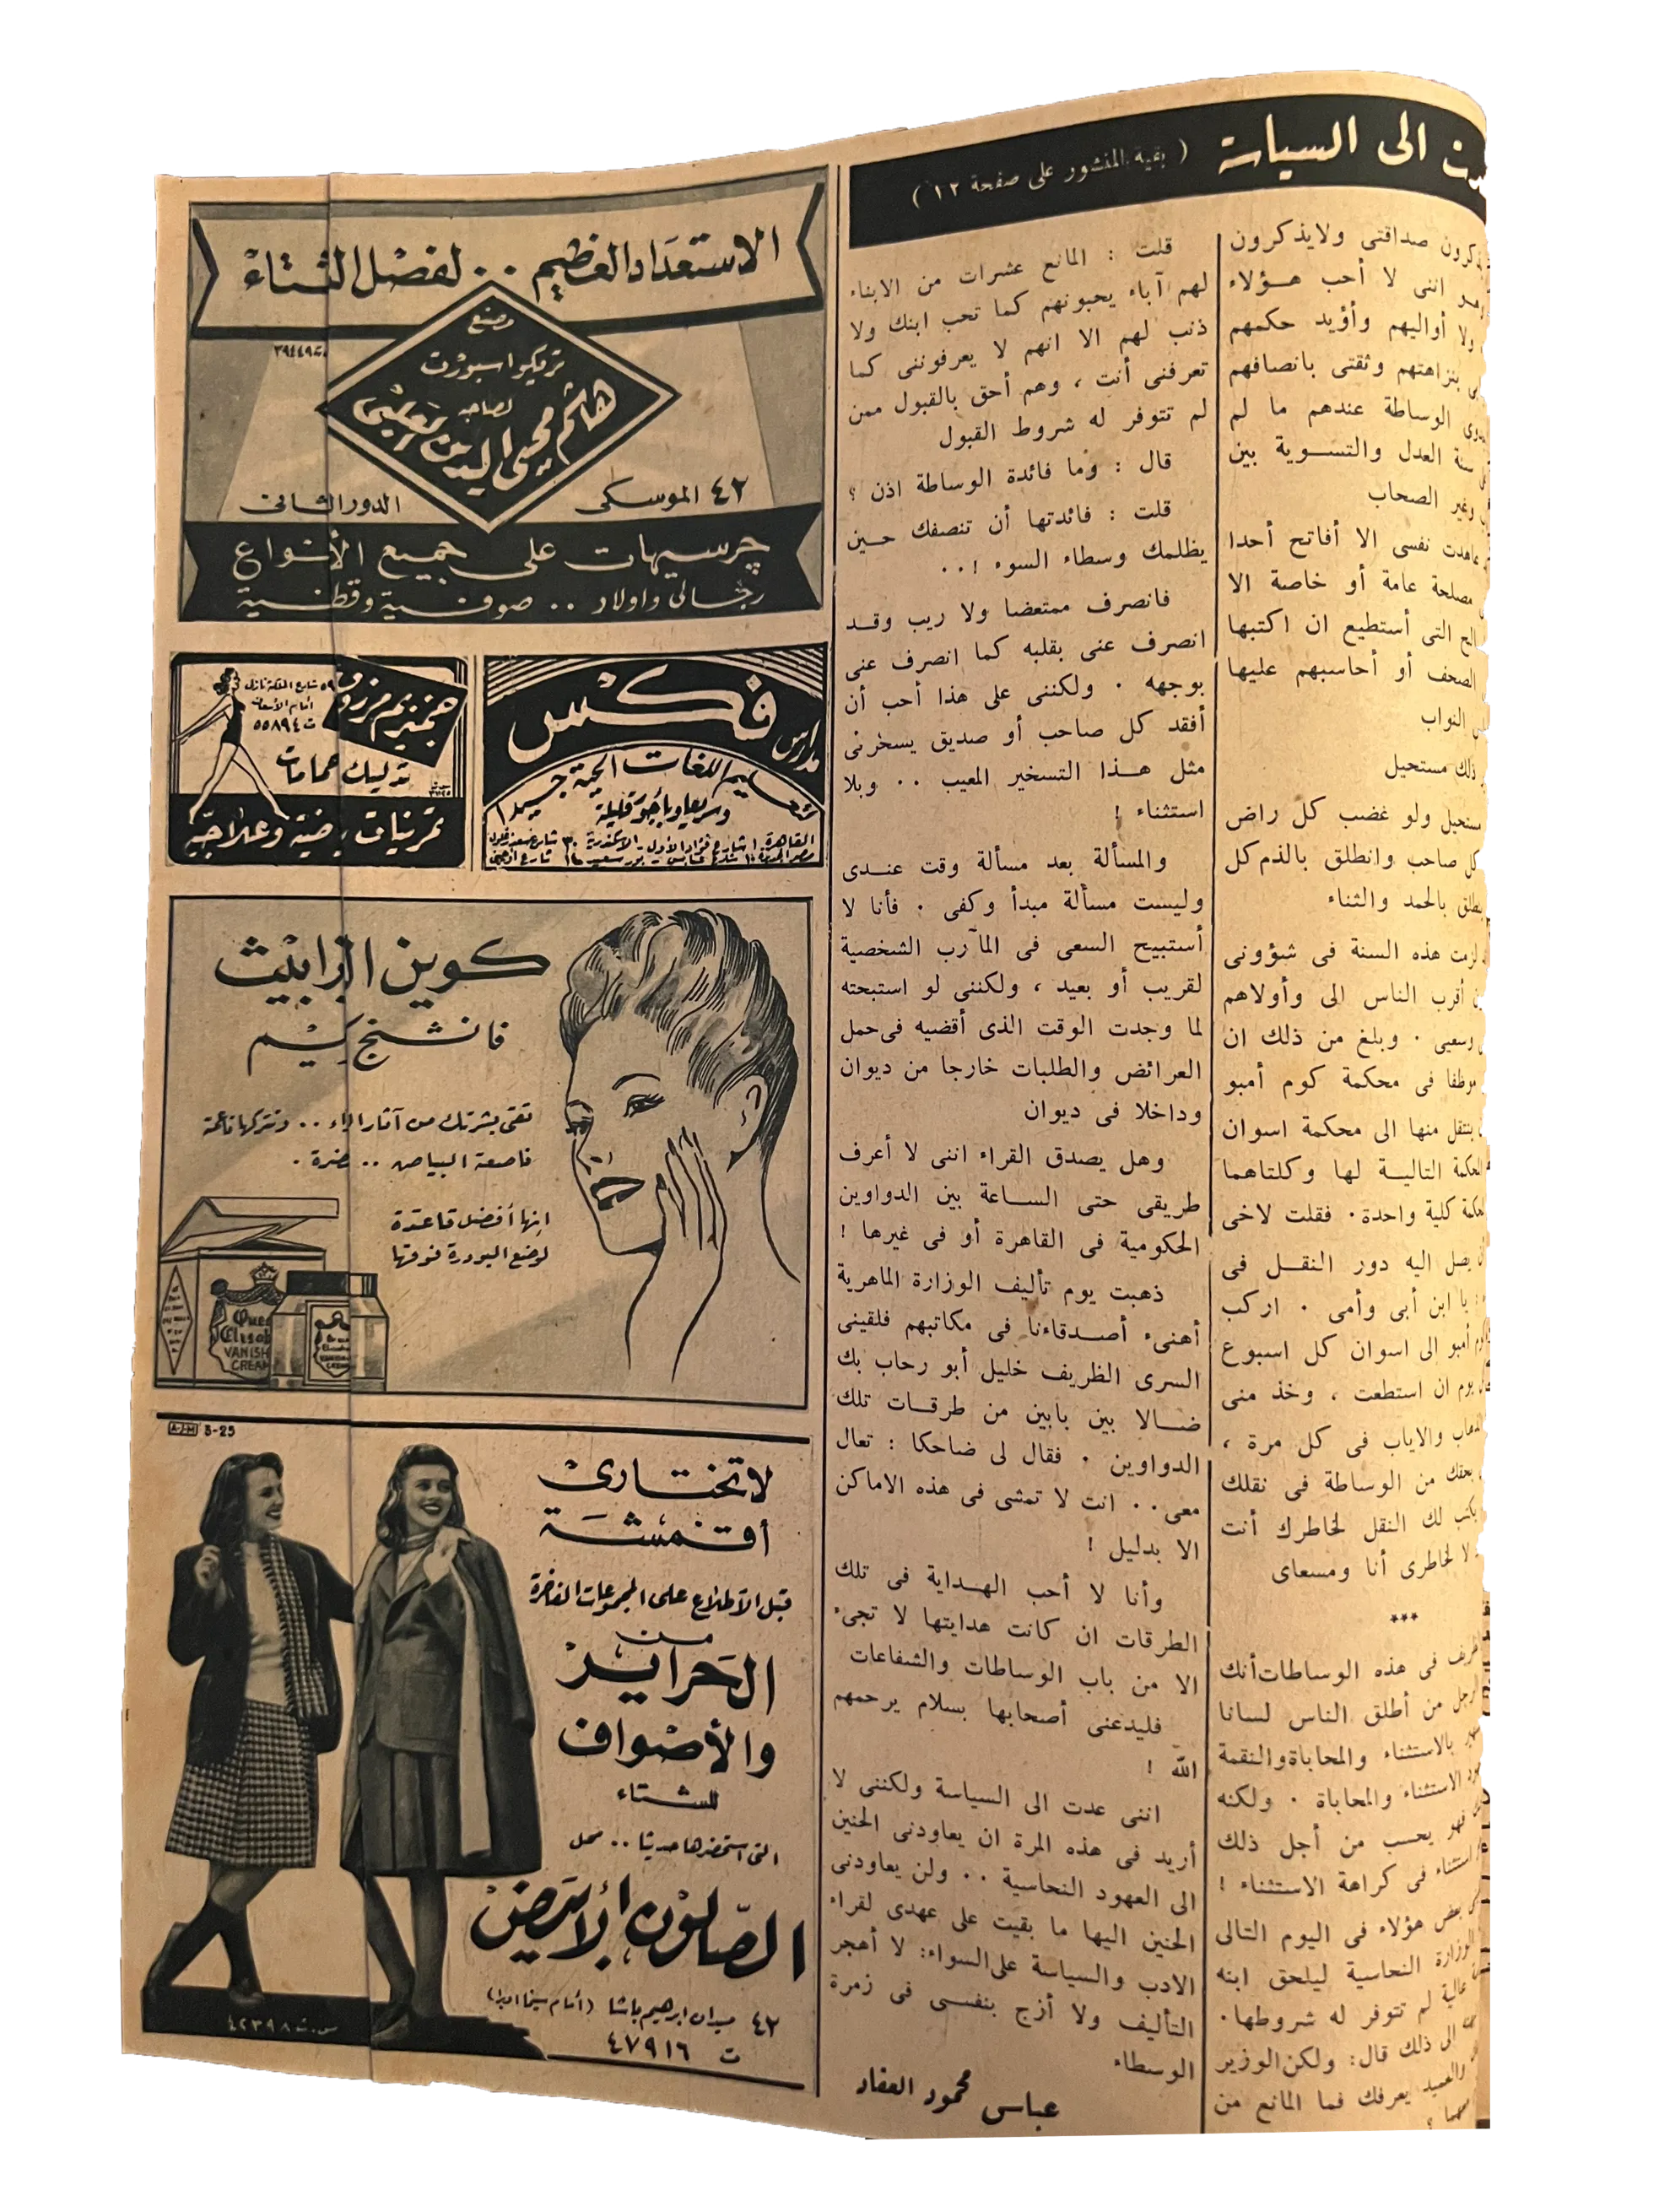 الى السياسة
( بقية المنشور على صفحة ١٢ )
صداقتى ولايذكرون
اننى لا أحب هـؤلاء
ولا أواليهم وأؤيد حكمهم
بنزاهتهم وثقتى بانصافهم
الوساطة عندهم ما لم
سنة العدل والتسـوية بين
وغير الصحاب
عاهدت نفسى الا أفاتح أحدا
مصلحة عامة أو خاصة الا
التى أستطيع ان اكتبها
الصحف أو أحاسبهم عليها
النواب
ذلك مستحيل
مستحيل ولو غضب كل راض
كل صاحب وانطلق بالذم كل
بالحمد والثناء
لزمت هذه السنة فى شؤونى
أقرب الناس الى وأولاهم
وسعيى . وبلغ من ذلك ان
موظفا فى محكمة كوم أمبو
ينتقل منها الى محكمة اسوان
المحكمة التالية لها وكلتاهما
كلية واحدة . فقلت لاخى
يصل اليه دور النقـل فى
يا ابن أبى وأمى . اركب
أمبو الى اسوان كل اسبوع
يوم ان استطعت ، وخذ منى
والاياب فى كل مرة ،
من الوساطة فى نقلك
يكتب لك النقل لخاطرك أنت
لا لخاطرى أنا ومسعاى
***
فى هذه الوساطات أنك
من أطلق الناس لسانا
بالاستثناء والمحاباة والنقمة
الاستثناء والمحاباة . ولكنه
فهو يحسب من أجل ذلك
استثناء فى كراهة الاستثناء !
بعض هؤلاء فى اليوم التالى
الوزارة النحاسية ليلحق ابنه
عالية لم تتوفر له شروطها .
الى ذلك قال : ولكن الوزير
والعميد يعرفك فما المانع من
؟
قلت : المانع عشرات من الابناء
لهم آباء يحبونهم كما تحب ابنك ولا
ذنب لهم الا انهم لا يعرفوننى كما
تعرفنى أنت ، وهم أحق بالقبول ممن
لم تتوفر له شروط القبول
قال : وما فائدة الوساطة اذن ؟
قلت : فائدتها أن تنصفك حـين
يظلمك وسطاء السوء ! . .
فانصرف ممتعضا ولا ريب وقـد
انصرف عنى بقلبه كما انصرف عنى
بوجهه . ولكننى على هذا أحب أن
أفقد كل صاحب أو صديق يسخرنى
مثل هـذا التسخير المعيب . . وبلا
استثناء !
والمسألة بعد مسألة وقت عنـدى
وليست مسألة مبدأ وكفى . فأنا لا
أستبيح السعى فى المآرب الشخصية
لقريب أو بعيد ، ولكننى لو استبحته
لما وجدت الوقت الذى أقضيه فى حمل
العرائض والطلبات خارجا من ديوان
وداخلا فى ديوان
وهل يصدق القراء اننى لا أعرف
طريقى حتى السـاعة بين الدواوين
الحكومية فى القاهرة أو فى غيرها !
ذهبت يوم تأليف الوزارة الماهرية
أهنىء أصـدقاءنا فى مكاتبهم فلقينى
السرى الظريف خليل أبو رحاب بك
ضـالا بين بابين من طرقـات تلك
الدواوين . فقال لى ضاحكا : تعال
معى . . انت لا تمشى فى هذه الاماكن
الا بدليل !
وأنا لا أحب الهـداية فى تلك
الطرقات ان كانت هدايتها لا تجىء
الا من باب الوساطات والشفاعات
فليدعنى أصحابها بسلام يرحمهم
الله !
اننى عدت الى السياسة ولكننى لا
أريد فى هذه المرة ان يعاودنى الحنين
الى العهود النحاسية . . ولن يعاودنى
الحنين اليها ما بقيت على عهدى لقراء
الادب والسياسة على السواء : لا أهجر
التأليف ولا أزج بنفسى فى زمرة
الوسطاء
عباس محمود العقاد
الاستعداد العظيم . . لفصل الشتاء
مصنع
تريكو اسبورت
لصاحبه
هاشم محيى الدين
ت ٣٩٤٤٩
٤٢ الموسكى
الدور الثانى
جرسيهات على جميع الأنواع
رجالى واولاد . . صوفية وقطنية
مدارس فكس
تعليم اللغات الحية جيدا
وسريعا وبأجور قليلة
٥٩ شارع الملكة نازلى
أمام الاسعاف
ت ٥٥٨٩٤
تدليك حمامات
تمرينات رياضية وعلاجية
كوين اليزابيث
فانشنج كريم
تقى بشرتك من آثار الماء . . وتتركها ناعمة
ناصعة البياض . . نضرة .
إنها أفضل قاعدة
لوضع البودرة فوقها
VANISH
CREAM
A-J-M
لا تختارى
أقمشة
قبل الاطلاع على المجموعات الفاخرة
من
الحراير
والأصواف
للشتاء
التى استحضرها حديثا . . محل
الصالون الأبيض
٤٢ ميدان ابرهيم باشا (أمام سينما اوبرا)
ت ٤٧٩١٦
س . ت ٤٢٣٩٨